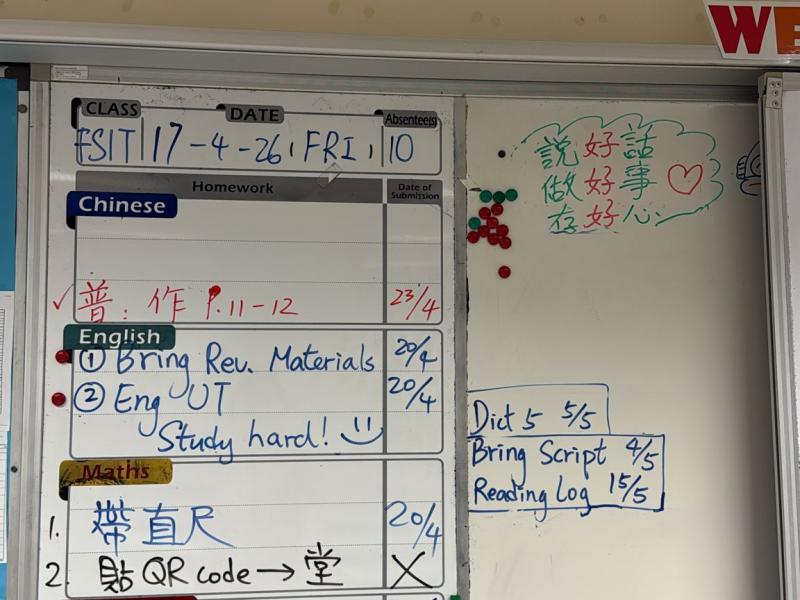 WE
CLASS DATE Absentee(s)
17-4-26, FRI, 10
Homework Date of Submission
Chinese
✓ 普：作 P.11-12 23/4
English
① Bring Rev. Materials 20/4
② Eng UT 20/4
Study hard!
Maths
1. 帶直尺 20/4
2. 貼QR code → 堂 X
說好話
做好事
存好心
Dict 5 5/5
Bring Script 4/5
Reading Log 15/5